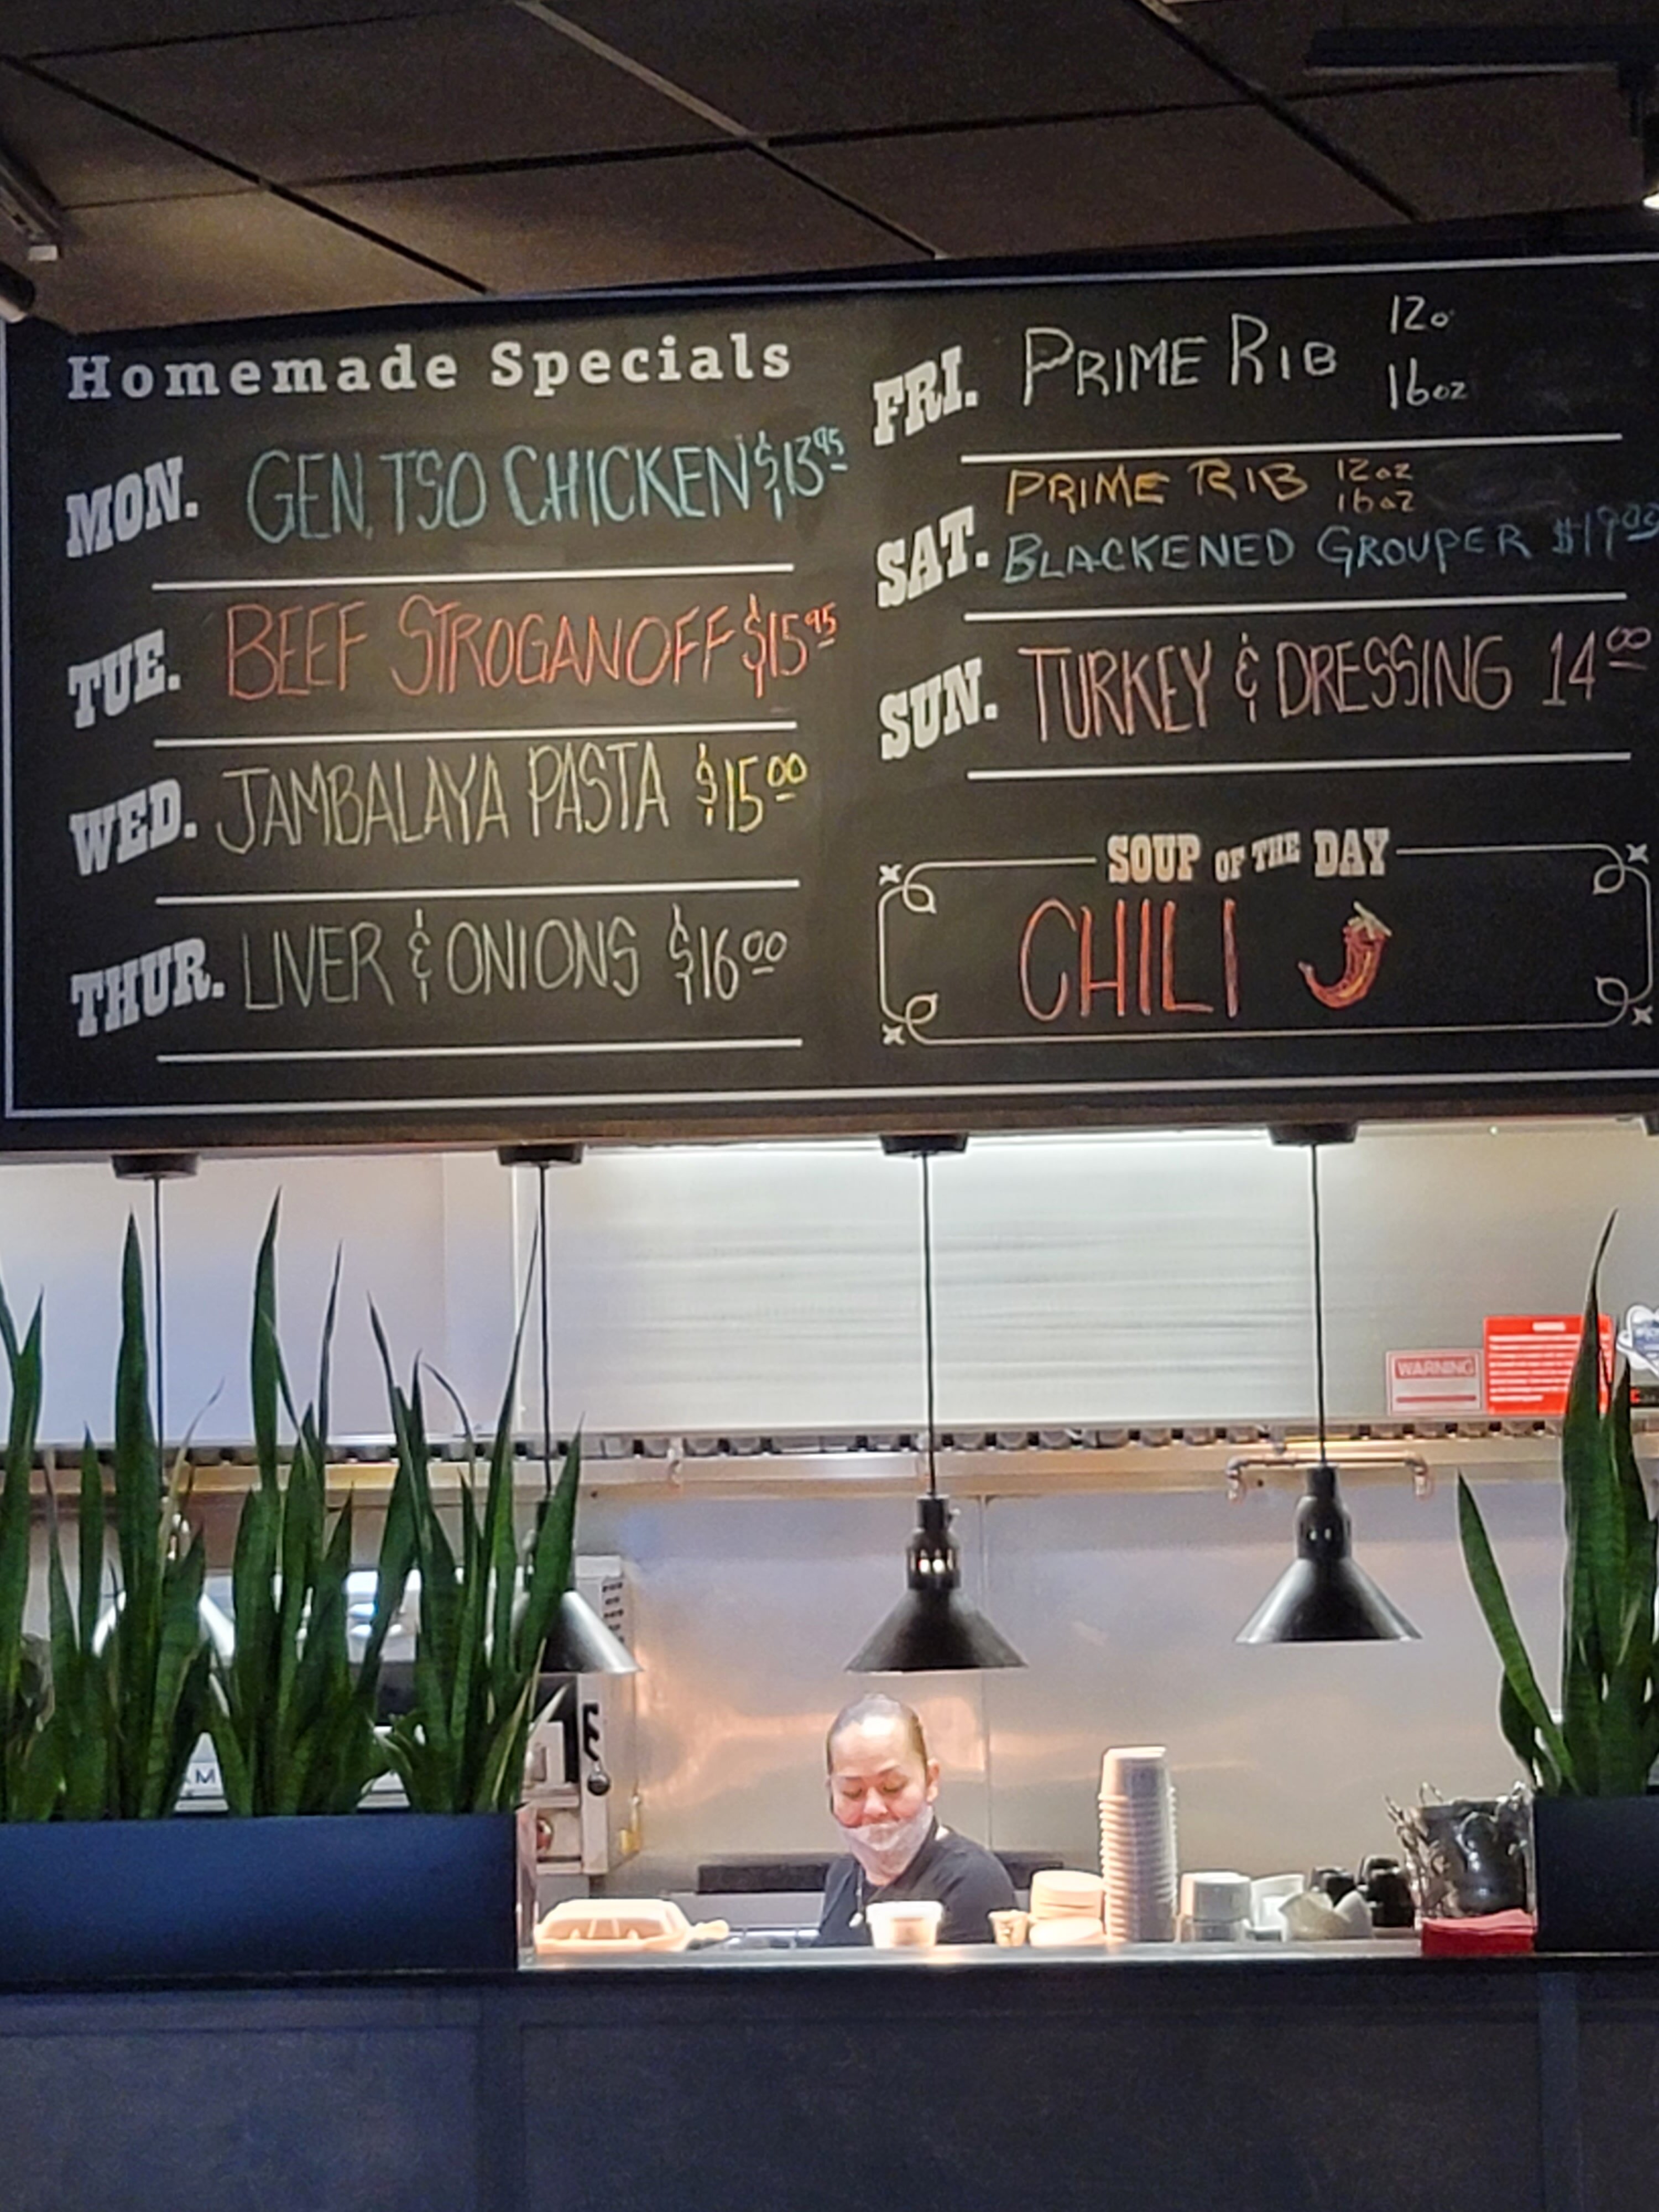 Homemade Specials
MON. GEN. TSO CHICKEN $13 95
TUE. BEEF STROGANOFF $15 95
WED. JAMBALAYA PASTA $15 00
THUR. LIVER & ONIONS $16 00
FRI. PRIME RIB 12o
16oz
SAT. PRIME RIB 12oz
16oz
BLACKENED GROUPER
SUN. TURKEY & DRESSING 14 00
SOUP OF THE DAY
CHILI
WARNING